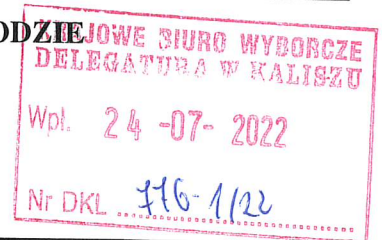 ODZIE
KRAJOWE BIURO WYBORCZE
DELEGATURA W KALISZU
Wpł. 24 -07- 2022
Nr DKL 776-1/22